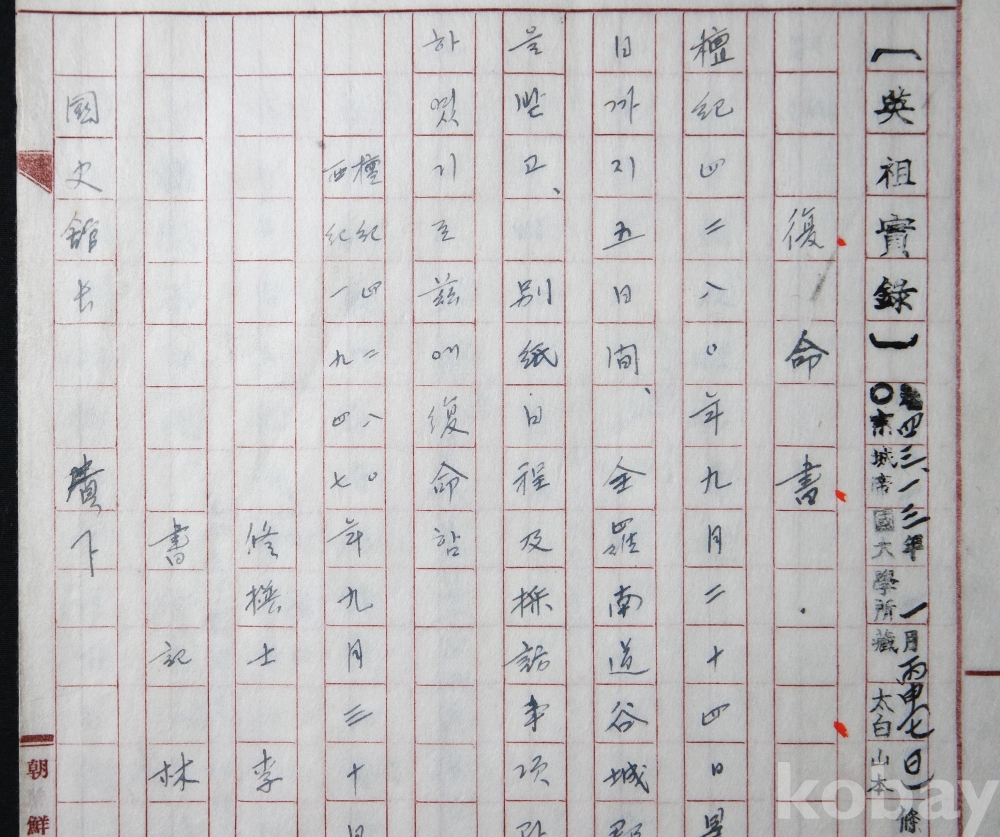 【英祖實錄】卷四三、一三年一月丙申(七日)條
〇京城帝國大學所藏太白山本
復命書
檀紀四二八〇年九月二十四日
日까지五日間、全羅南道谷城郡
을 받고、別紙日程及採訪事項
하였기 玆에 復命함
檀紀四二八〇年九月三十日
西紀一九四七
修撰士 李
書記 林
國史館長 貴下
朝鮮
kobay